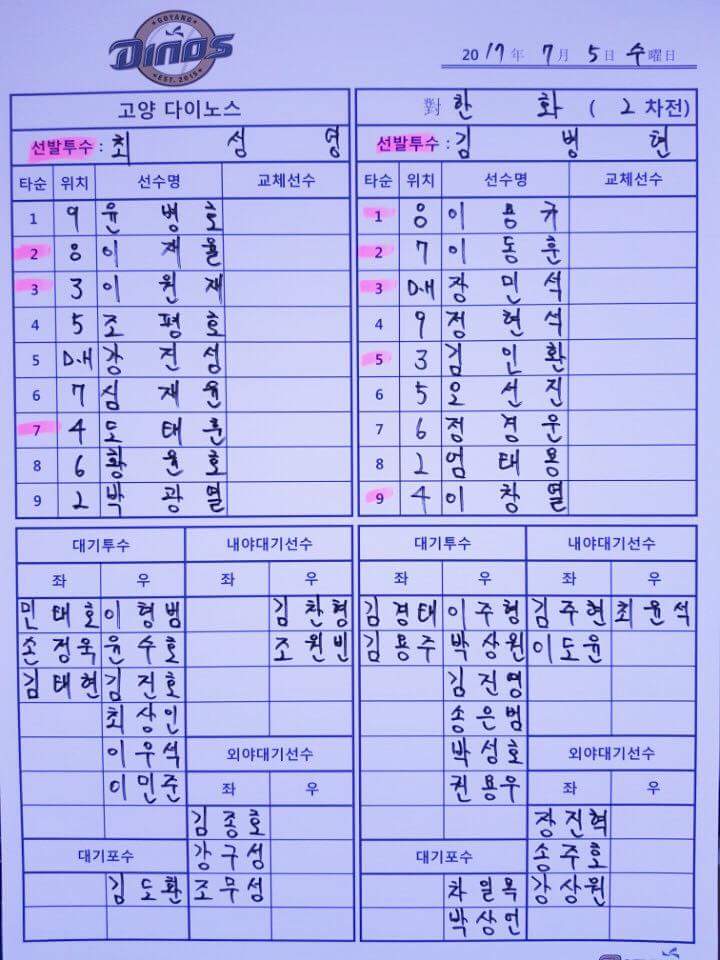 GOYANG
DINOS
EST. 2015
2017年 7月 5日 수曜日
고양 다이노스
선발투수 : 최 성 영
타순 위치 선수명 교체선수
1 9 윤병호
2 8 이재율
3 3 이원재
4 5 조평호
5 D.H 강진성
6 7 심재윤
7 4 도태훈
8 6 황윤호
9 2 박광열
대기투수 내야대기선수
좌 우 좌 우
민태호 이형범 김찬형
손정욱 윤수호 조원빈
김태현 김진호
최상인
이우석 외야대기선수
이민준 좌 우
김종호
대기포수 강구성
김도환 조무성
對 한 화 ( 2 차전)
선발투수 : 김 병 현
타순 위치 선수명 교체선수
1 8 이용규
2 7 이동훈
3 D.H 장민석
4 9 정현석
5 3 김인환
6 5 오선진
7 6 정경운
8 2 엄태용
9 4 이창열
대기투수 내야대기선수
좌 우 좌 우
김경태 이주형 김주현 최윤석
김용주 박상원 이도윤
김진영
송은범
박성호 외야대기선수
권용우 좌 우
장진혁
대기포수 송주호
차일목 강상원
박상언